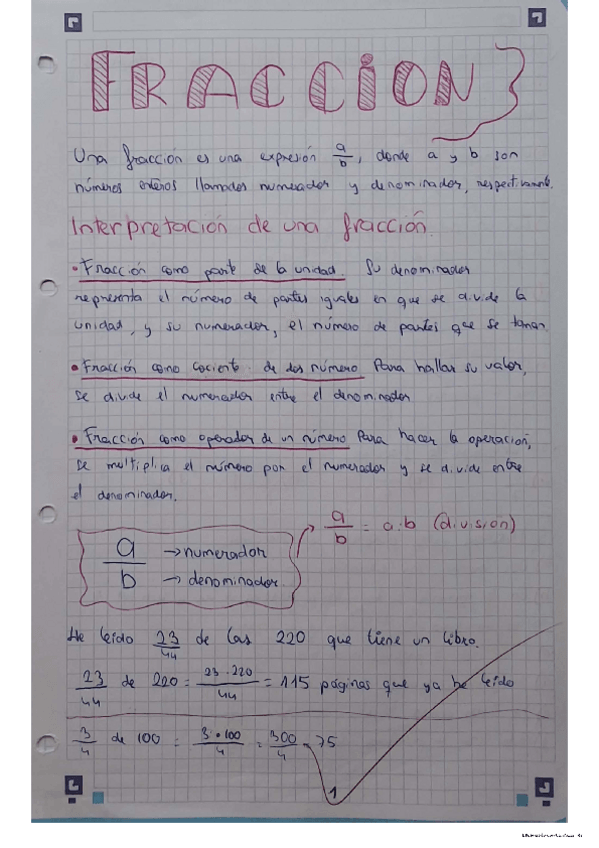 FRACCION
Una fracción es una expresión a/b, donde a y b son
números enteros llamados numerador y denominador, respectivamente.
Interpretación de una fracción.
• Fracción como parte de la unidad. Su denominador
representa el número de partes iguales en que se divide la
unidad, y su numerador, el número de partes que se toman.
• Fracción como cociente de dos número Para hallar su valor,
se divide el numerador entre el denominador
• Fracción como operador de un número Para hacer la operación,
se multiplica el número por el numerador y se divide entre
el denominador.
a/b = a:b (división)
a → numerador
b → denominador
He leído 23/44 de las 220 que tiene un libro.
23/44 de 220 = 23·220/44 = 115 páginas que ya he leído
3/4 de 100 = 3·100/4 = 300/4 = 75
1